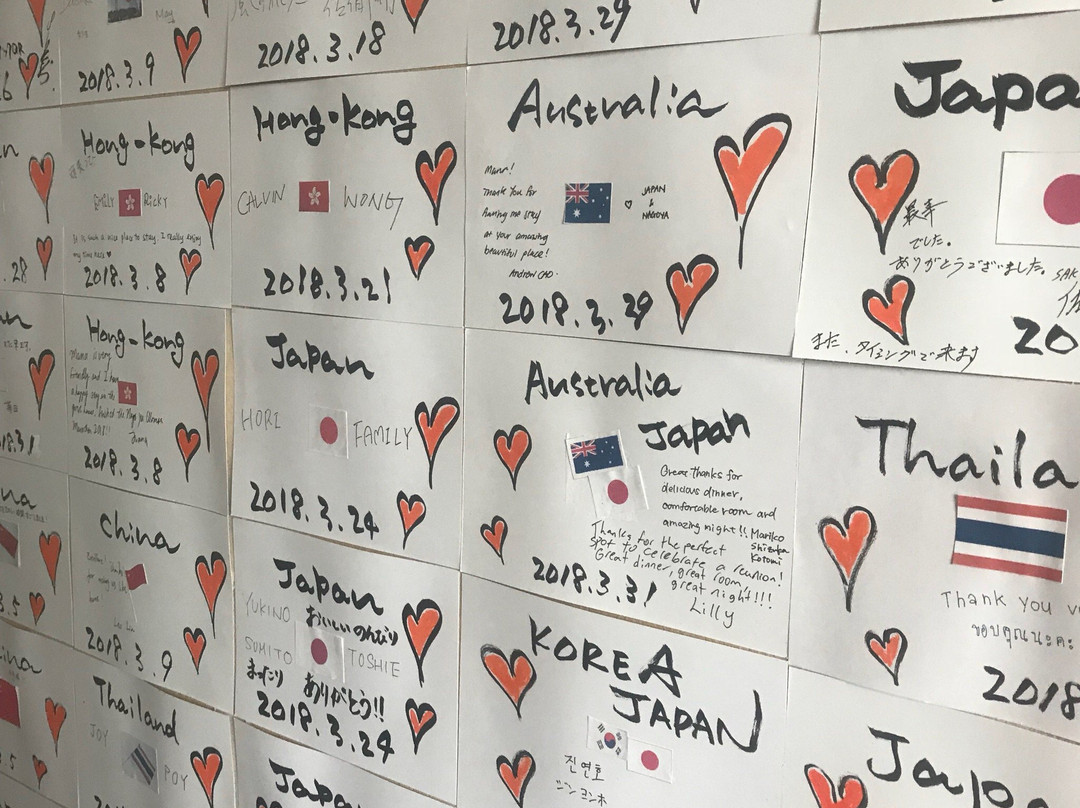 2018.3.9
2018.3.18
2018.3.29
Hong-Kong
EMILY RICKY
It is such a nice place to stay. I really enjoy
my time here
2018.3.8
Hong-Kong
CALVIN WONG
2018.3.21
Australia
Thank you for
having me stay
at your amazing
beautiful place!
JAPAN
&
NAGOYA
2018.3.29
Japa
最幸
でした。
ありがとうございました。
また、タイミングで来ます
20
.28
Hong-Kong
2018.3.8
Japan
HORI FAMILY
2018.3.24
Australia
Japan
Great thanks for
delicious dinner,
comfortable room and
amazing night!! Mariko
Shizuka
Kotomi
Thanks for the perfect
spot to celebrate a reunion!
Great dinner, great room,
great night!!!
Lilly
2018.3.31
Thaila
Thank you v
ขอบคุณนะคะ
2018
China
2018.3.9
Japan
おいしいのんびり
YUKINO
SUMITO TOSHIE
まったり ありがとう!!
2018.3.24
KOREA
JAPAN
진연호
ジンヨンホ
Thailand
JOY POY
Japan
Japa